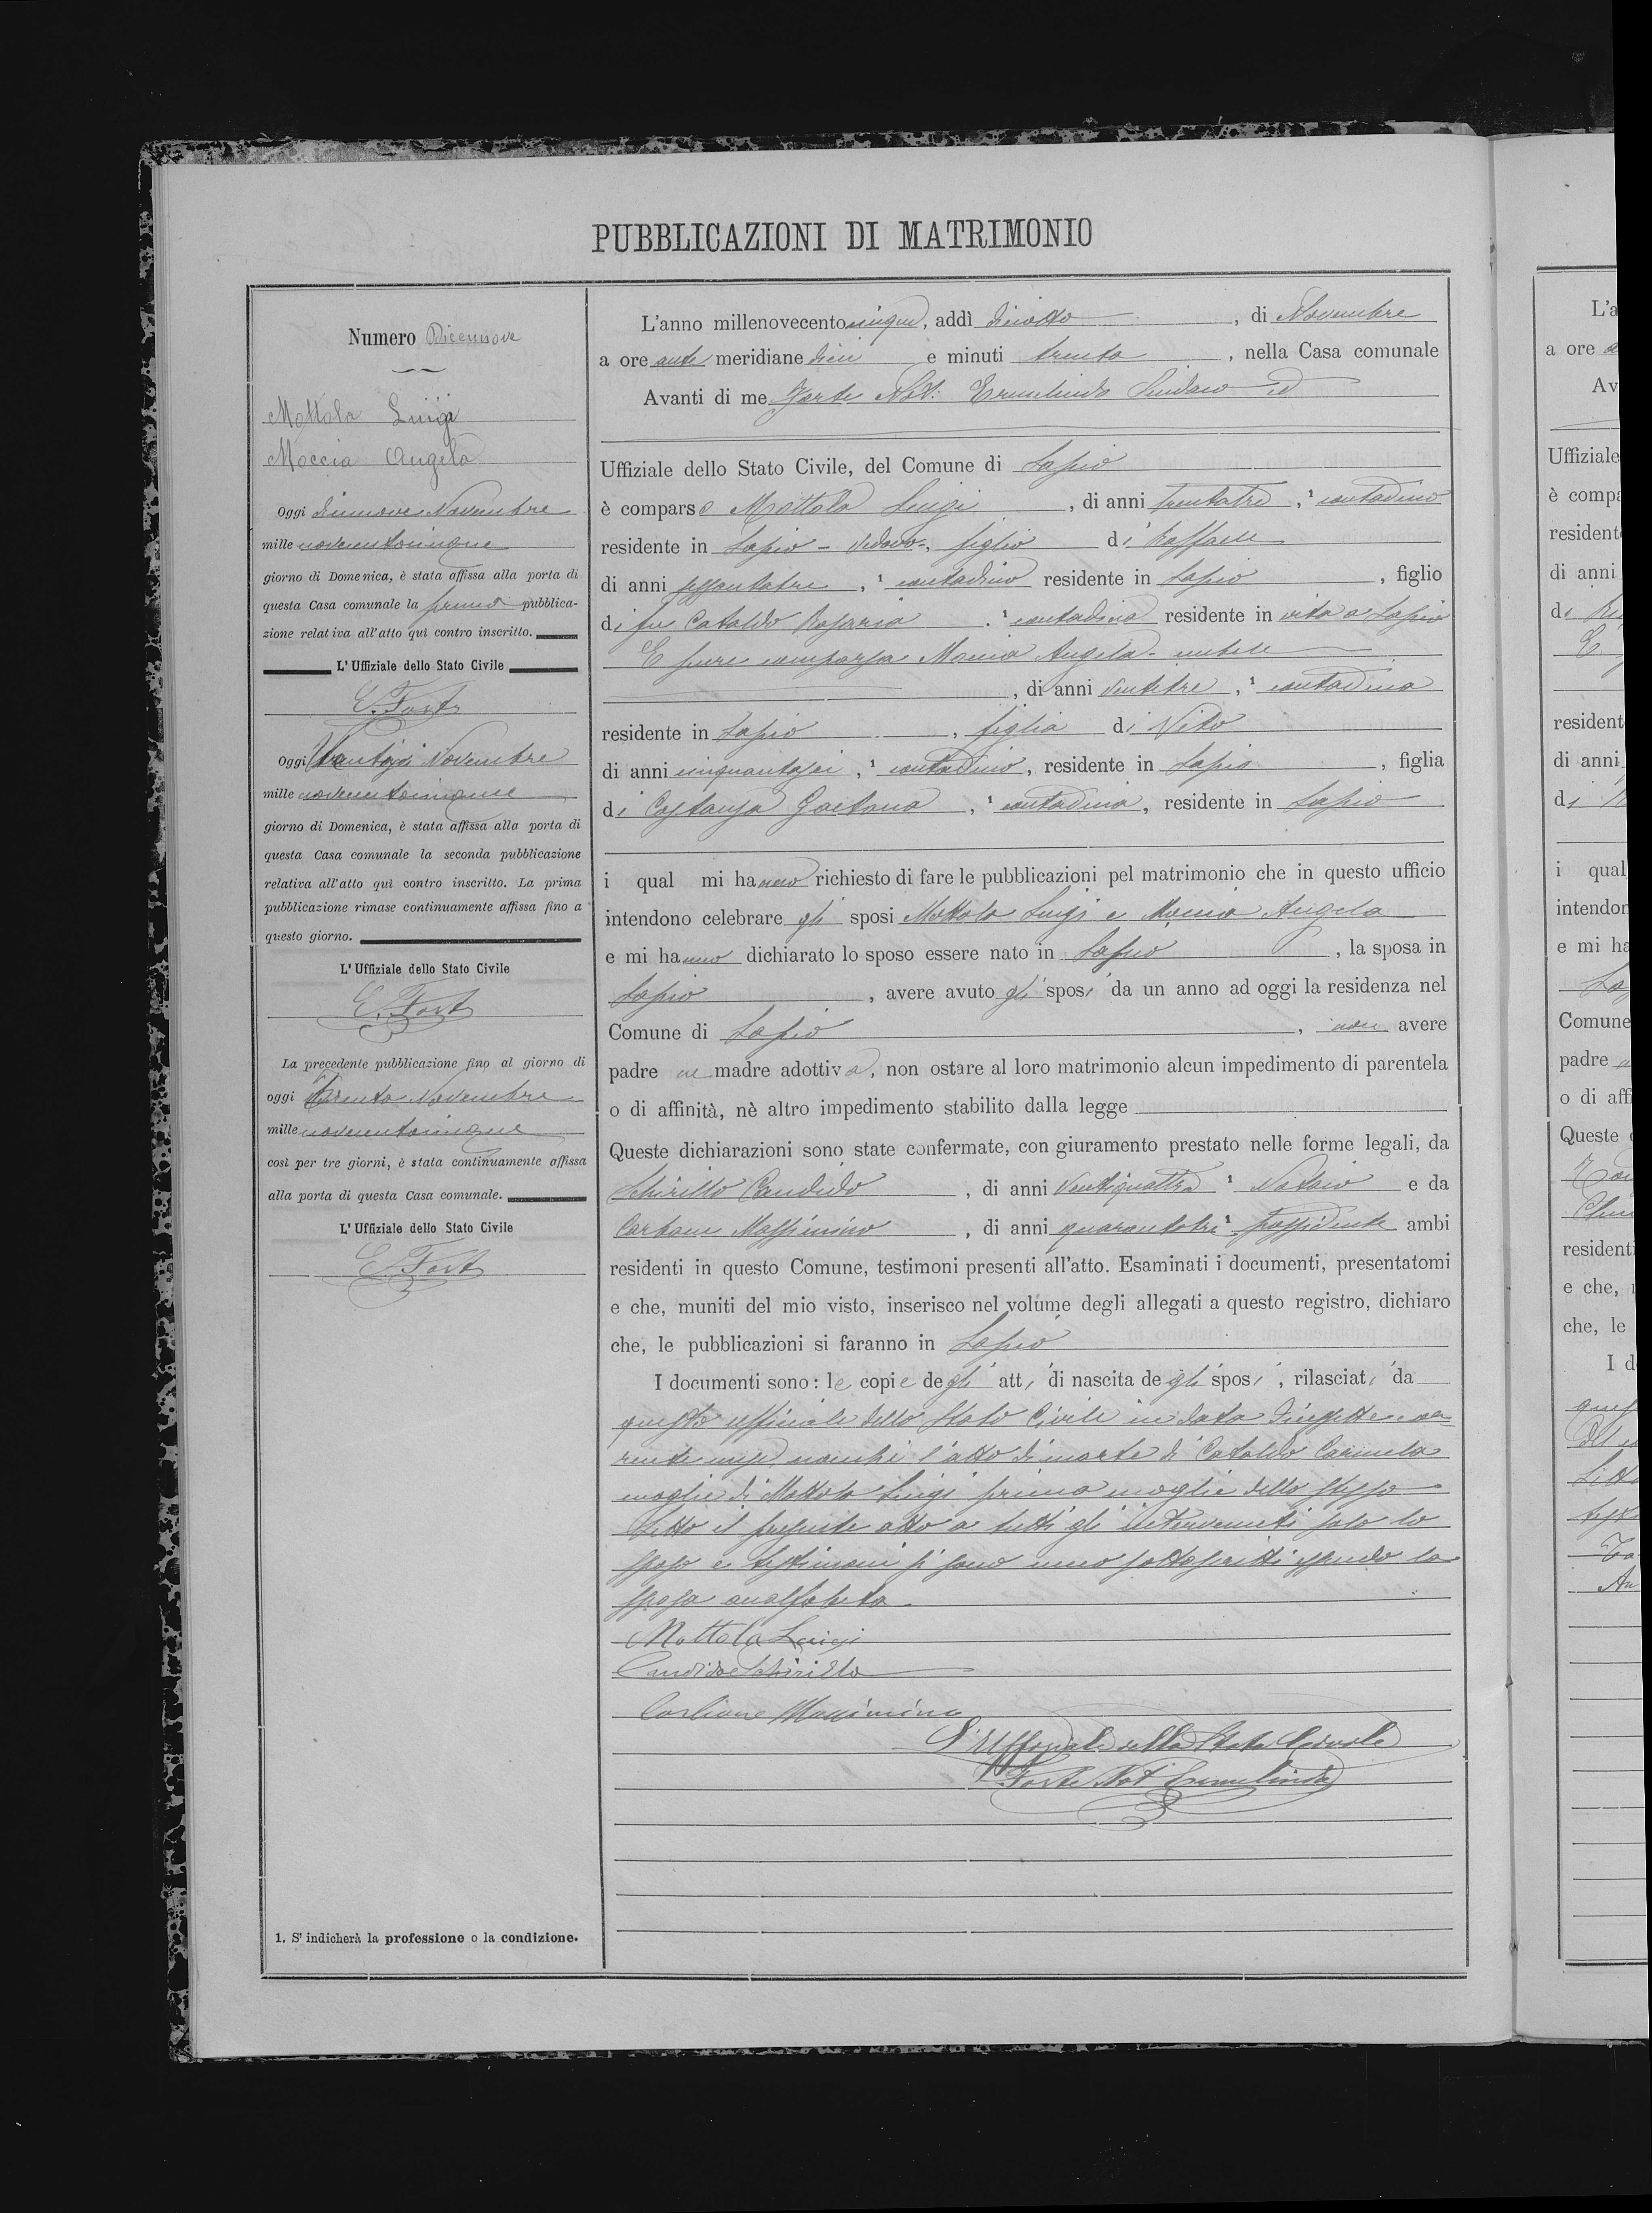 PUBBLICAZIONI DI MATRIMONIO
Numero Diecinnove
Mottola Luigi
Moccia Angela
Oggi diecinnove Novembre
mille novecentocinque
giorno di Domenica, è stata affissa alla porta di
questa Casa comunale la prima pubblica-
zione relativa all'atto quì contro inscritto.
L'Uffiziale dello Stato Civile
E. Forte
Oggi Ventisei Novembre
mille novecentocinque
giorno di Domenica, è stata affissa alla porta di
questa Casa comunale la seconda pubblicazione
relativa all'atto quì contro inscritto. La prima
pubblicazione rimase continuamente affissa fino a
questo giorno.
L'Uffiziale dello Stato Civile
E. Forte
La precedente pubblicazione fino al giorno di
oggi Trenta Novembre
mille novecentocinque
così per tre giorni, è stata continuamente affissa
alla porta di questa Casa comunale.
L'Uffiziale dello Stato Civile
E. Forte
1. S'indicherà la professione o la condizione.
L'anno millenovecentocinque, addì diciotto, di Novembre
a ore ante meridiane dieci e minuti trenta, nella Casa comunale
Avanti di me Forte Not. Ermelindo Sindaco ed
Uffiziale dello Stato Civile, del Comune di Lapio
è comparso Mottola Luigi, di anni trentatre, ¹ contadino
residente in Lapio - vedovo -, figlio di Raffaele
di anni sessantatre, ¹ contadino residente in Lapio, figlio
di fu Cataldo Rosaria, ¹ contadina residente in vita a Lapio
E pure comparsa Moccia Angela - nubile
, di anni ventitre, ¹ contadina
residente in Lapio, figlia di Vito
di anni cinquantasei, ¹ contadino, residente in Lapio, figlia
di Costanza Gaetana, ¹ contadina, residente in Lapio
i qual mi hanno richiesto di fare le pubblicazioni pel matrimonio che in questo ufficio
intendono celebrare gli sposi Mottola Luigi e Moccia Angela
e mi hanno dichiarato lo sposo essere nato in Lapio, la sposa in
Lapio, avere avuto gli sposi da un anno ad oggi la residenza nel
Comune di Lapio, non avere
padre ne madre adottivo, non ostare al loro matrimonio alcun impedimento di parentela
o di affinità, nè altro impedimento stabilito dalla legge
Queste dichiarazioni sono state confermate, con giuramento prestato nelle forme legali, da
Schirillo Candido, di anni ventiquattro ¹ Notaio e da
Carbone Massimino, di anni quarantatre ¹ possidente ambi
residenti in questo Comune, testimoni presenti all'atto. Esaminati i documenti, presentatomi
e che, muniti del mio visto, inserisco nel volume degli allegati a questo registro, dichiaro
che, le pubblicazioni si faranno in Lapio
I documenti sono: le copie degli atti di nascita degli sposi, rilasciati da
questo uffiziale dello Stato Civile in data diciassette cor=
rente mese nonchè l'atto di morte di Cataldo Carmela
moglie di Mottola Luigi prima moglie dello stesso
Letto il presente atto a tutti gli intervenuti solo lo
sposo e testimoni si sono meco sottoscritti essendo la
sposa analfabeta.
Mottola Luigi
Candido Schirillo
Carbone Massimino
L'Uffiziale dello Stato Civile
Forte Not Ermelindo
L'a
a ore
Av
Uffiziale
è compa
resident
di anni
di
E
resident
di anni
di
i qual
intendon
e mi ha
Comune
padre
o di affi
Queste
residenti
e che,
che, le
I d